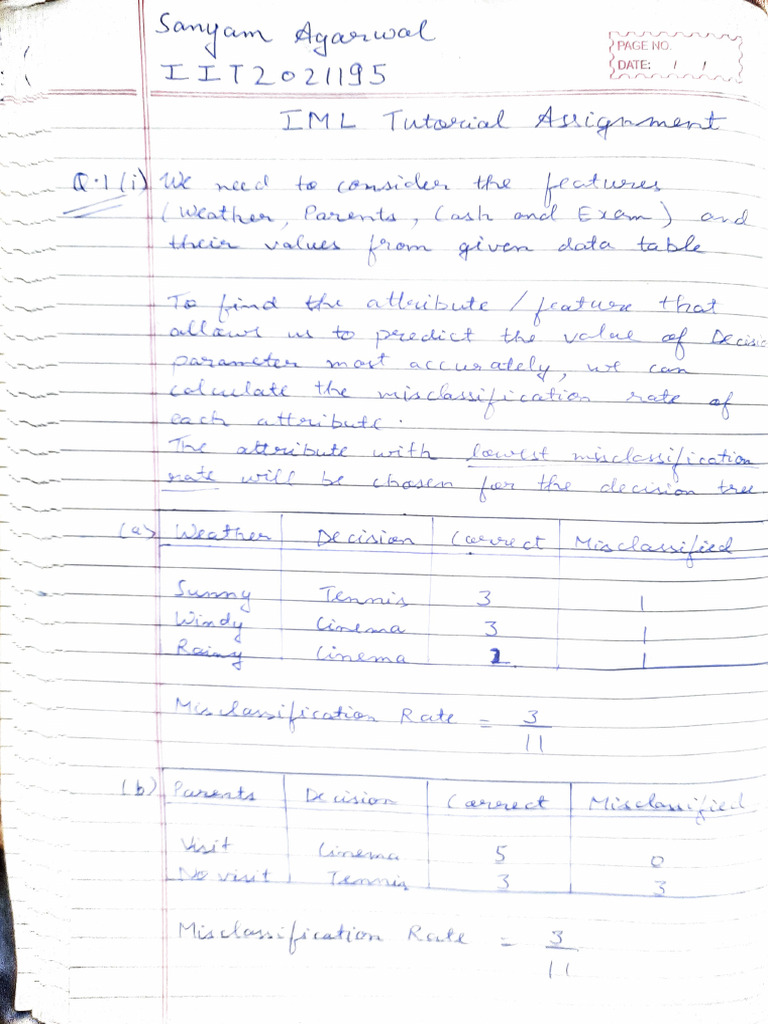 Sanyam Agarwal
IIT2021195
PAGE NO.
DATE: / /
IML Tutorial Assignment
Q.1 (i) We need to consider the features
(Weather, Parents, Cash and Exam) and
their values from given data table
To find the attribute / feature that
allows us to predict the value of Decisio
parameter most accurately, we can
calculate the misclassification rate of
each attribute.
The attribute with lowest misclassification
rate will be chosen for the decision tree
(a) Weather Decision Correct Misclassified
Sunny Tennis 3 1
Windy Cinema 3 1
Rainy Cinema 2 1
Misclassification Rate = 3
11
(b) Parents Decision Correct Misclassified
Visit Cinema 5 0
No visit Tennis 3 3
Misclassification Rate = 3
11